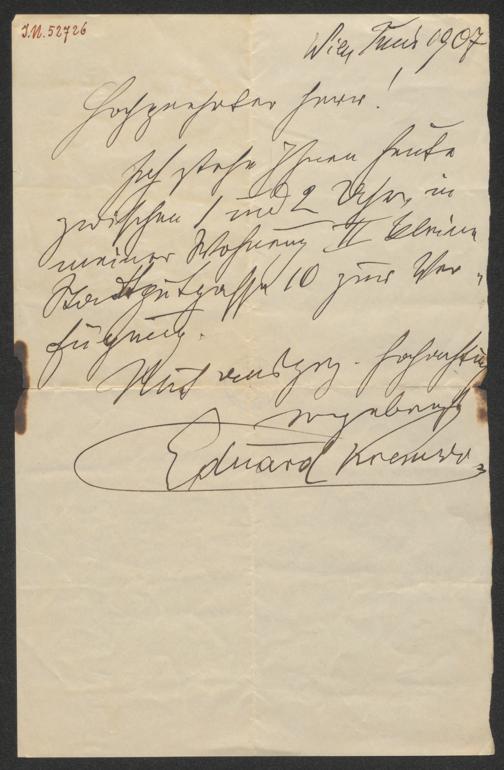 I.N. 52726
Wien, Juni 1907
Hochgeehrter Herr!
Ich stehe Ihnen heute
zwischen 1 und 2 Uhr, in
meiner Wohnung II kleine
Stadtgutgasse 10 zur Ver-
fügung.
Mit ausgez. Hochachtung
ergebenst
Eduard Kremser